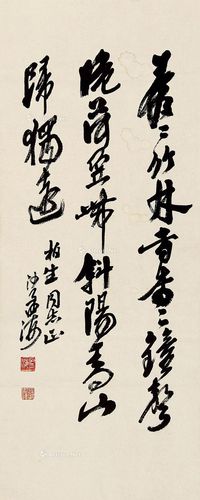 蒼〻竹林寺杳〻鐘聲
晚荷笠帶斜陽青山
歸獨遠
柏生同志正
沙孟海